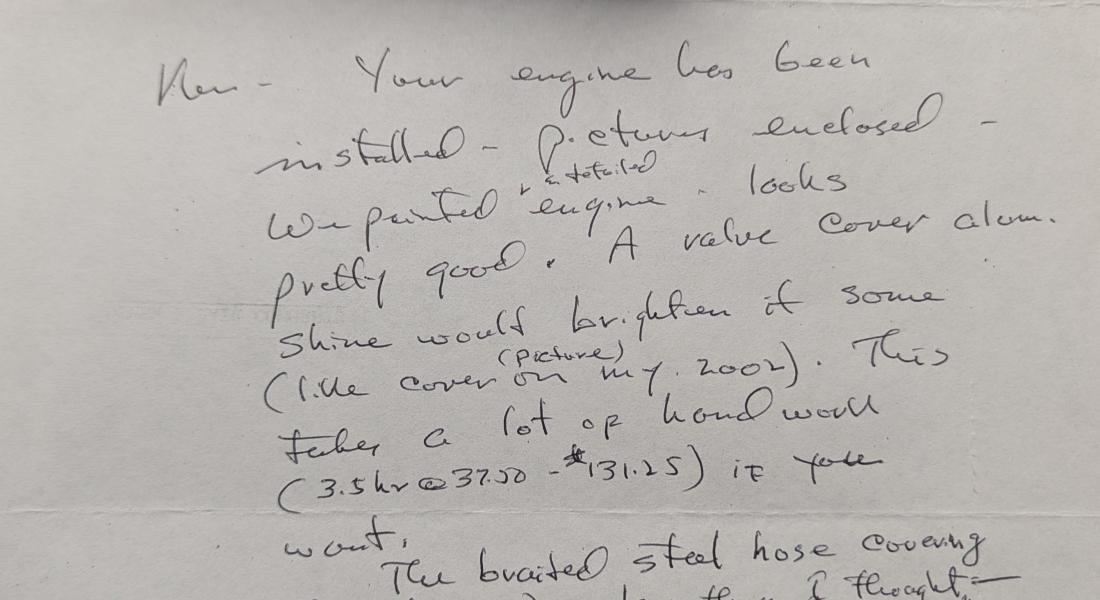 Ken - Your engine has been
installed - Pictures enclosed -
We painted + detailed engine - looks
pretty good. A valve cover alum.
shine would brighten it some
(like cover (picture) on my 2002). This
takes a lot of hand work
(3.5 hr @ 37.50 - $131.25) if you
want.
The braited steel hose covering
I thought -